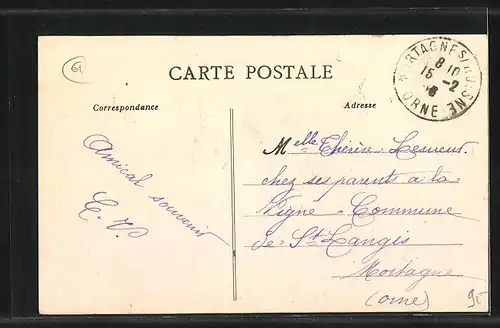 61
CARTE POSTALE
Correspondance
Adresse
MORTAGNE S/HUISNE
8 10
15 -2
ORNE
Amical souvenir
E. V.
Melle Thérèse Lesueur
chez ses parents a la
Vigne Commune
de St Langis
Mortagne
(orne)